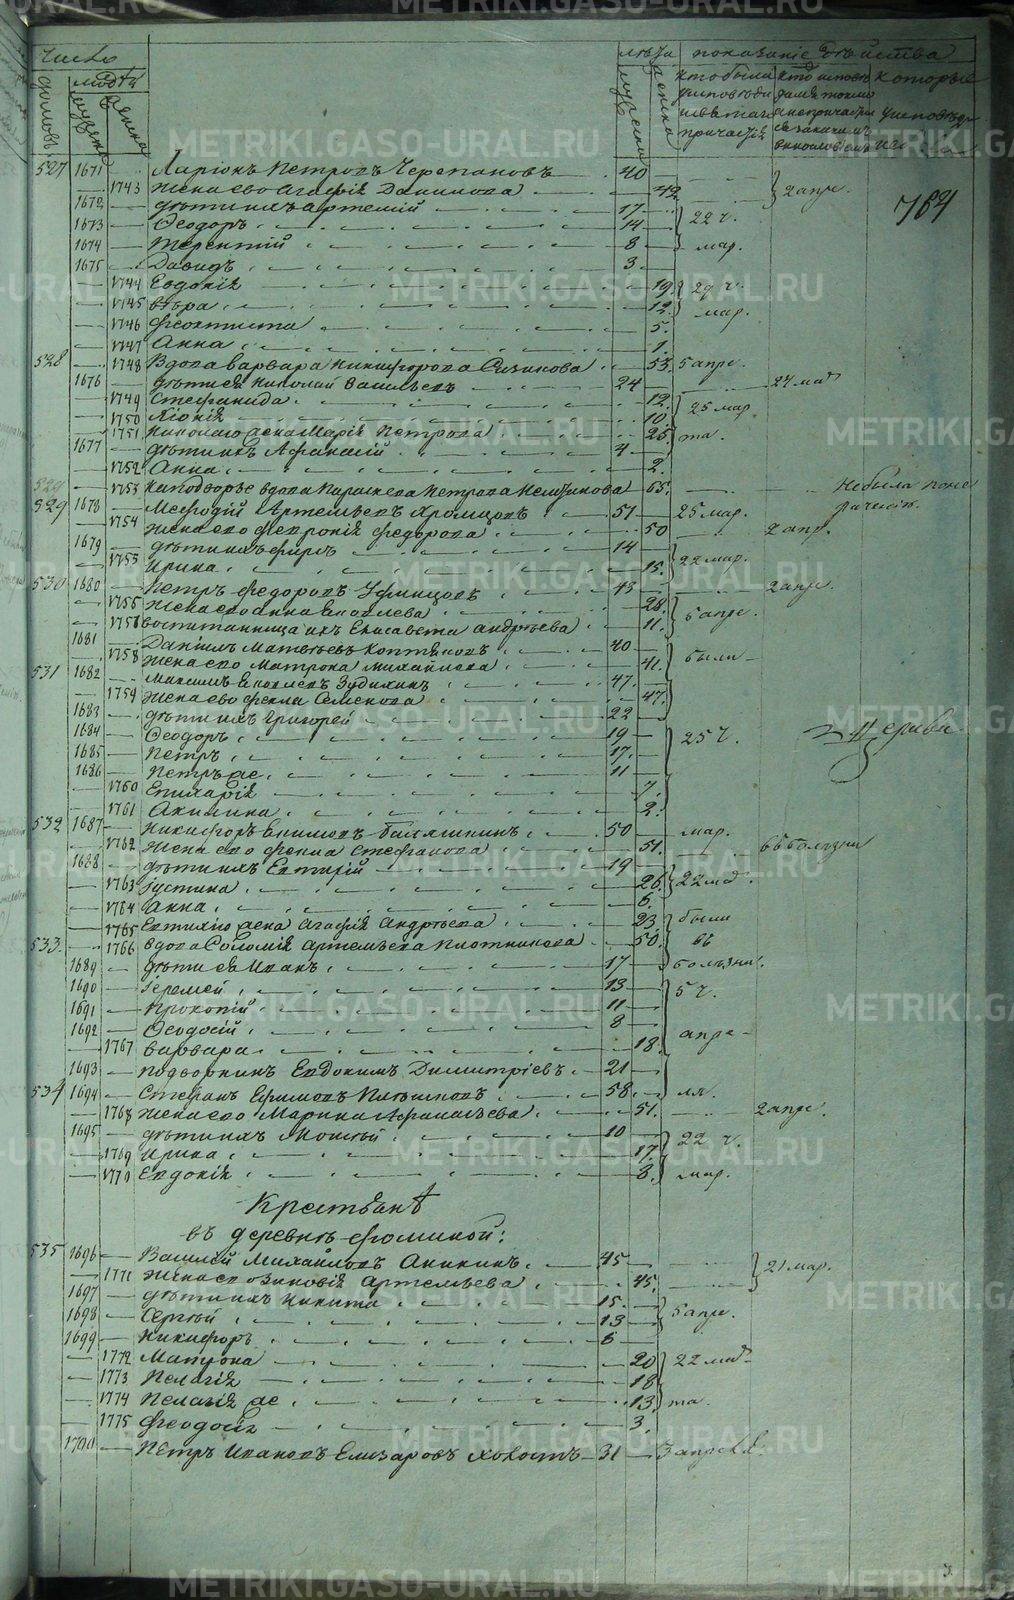 METRIKI.GASO-URAL.RU
число лѣта показаніе бытейства
домовъ людей
мужеска женска мужеска женска
764
527 1671 Ларіонъ Петровъ Черепановъ 40
1743 жена его Агафія Данилова 42 2 апре.
1672 дѣти ихъ Артемій 17
1673 Ѳеодоръ 14 22 ч.
1674 Терентій 8 мар.
1675 Давидъ 3
1744 Евдокія 19 29 ч.
1745 Вѣра 12 мар.
1746 Феоктиста 5.
1747 Анна 1
528 1748 Вдова Варвара Никифорова Сизикова 53 5 апре.
1676 дѣти ея Николай Васильевъ 24 24 мар
1749 Стефанида 12 25 мар
1750 10
1751 Николаю жена Марія Петрова 25 та.
1677 дѣти ихъ Афанасій 4
1752 Анна 2.
529 1753 на подворье вдова Параскева Петрова 65. не была по не
329 1678 Мефодій Артемьевъ Хромцовъ 51 25 мар.
1754 жена его Феврокія Федорова 50 2 апр.
1679 дѣти ихъ 14
1755 Ирина 15. 22 мар.
530 1680 Петръ Федоровъ Уфинцовъ 43 2 апре.
1755 жена его Анна Яковлева 28.
1757 воспитанница ихъ Елисавета Андрѣева 11. 5 апре.
1681 Даніилъ Матвѣевъ Коптяковъ 40
1758 жена его Матрона Михайлова 41. были
531 1682 Максимъ Яковлевъ Зудихинъ 47.
1759 жена его Фекла Семенова 47.
1683 дѣти ихъ Григорей 22
1684 Ѳеодоръ 19 25 ч.
1685 Петръ 17.
1686 Петръ же 11
1760 Епихарія 7.
1761 Акилина 2.
532 1687 Никифоръ Екимовъ Балякинъ 50 мар.
1762 жена его Фекла Стефанова 51. въ болѣзни
1688 дѣти ихъ Евтихій 19
1763 Іустина 26. 22 мар.
1764 Анна 6.
1765 Евтихію жена Агафія Андрѣева 23 были
533. 1766 вдова Соломія Артемьева Плотникова 50. въ
1689 дѣти ея Иванъ 17 болѣзни.
1690 Іеремей 13 5 ч.
1691 Прокопій 11
1692 Ѳеодосій 8 апре
1767 Варвара 18.
1693 подворникъ Евдокимъ Димитріевъ 21
534 1694 Стефанъ Ефимовъ 58. ля.
1768 жена его Марина Афанасьева 51. 2 апре.
1695 дѣти ихъ Моисей 10 22 ч.
1769 Ирина 17.
1770 Евдокія 3. мар.
Крестьянѣ
въ деревнѣ Фоминой:
535 1696 Василей Михайловъ Аникинъ 45
1771 жена его Зиновія Артемьева 45. 21 мар.
1697 дѣти ихъ Никита 15.
1698 Сергѣй 13 5 апре.
1699 Никифоръ 6
1772 Матрона 20 22 мар
1773 Пелагія 18
1774 Пелагія же 13 та.
1775 Феодосія 3.
1700 Петръ Ивановъ Елизаровъ холостъ 31 3 апреля.